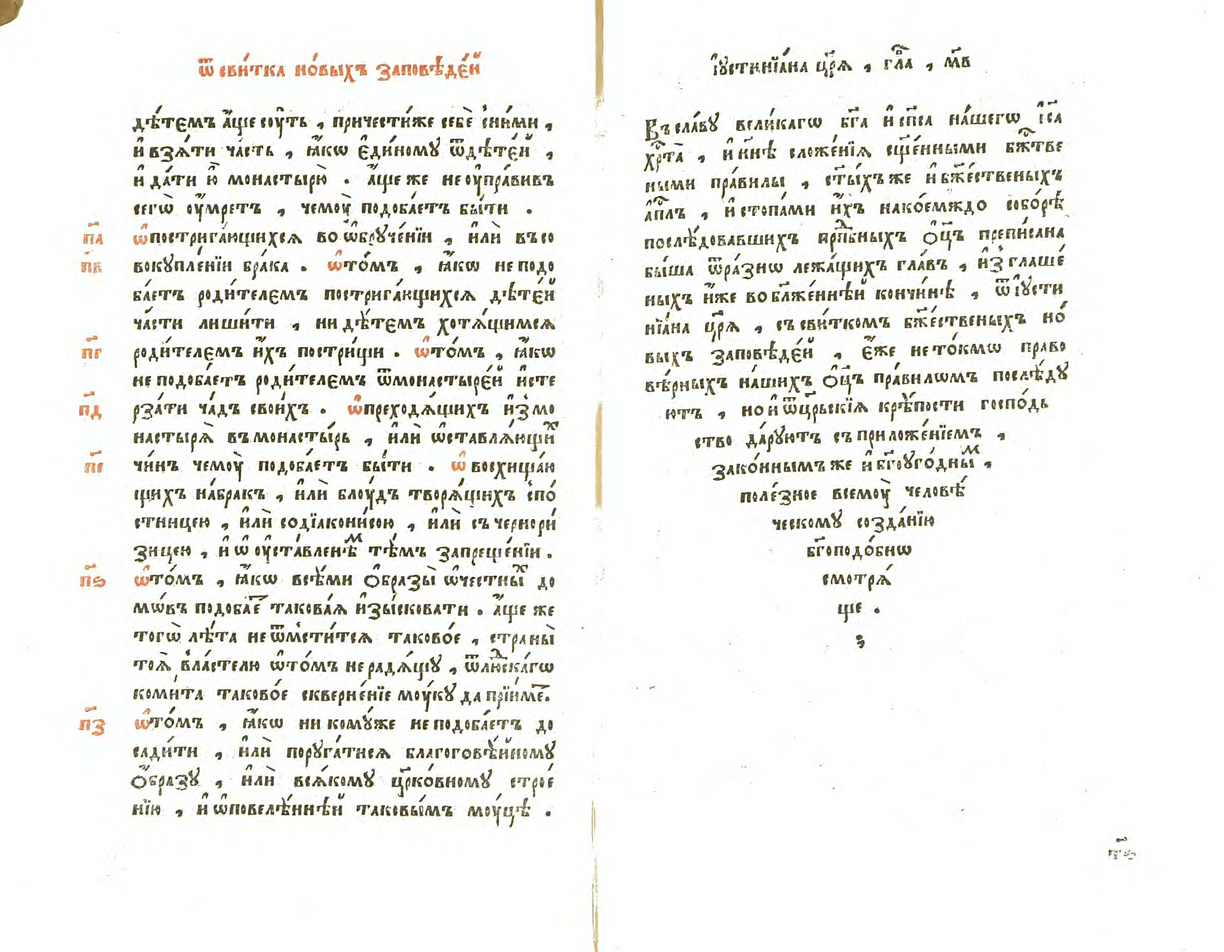 ѿ сви́тка но́выхъ за́повѣде́й
дѣ́темъ а҆́ще сꙋ́ть , причести́же себѐ с̾ни́ми ,
и҆ взѧ́ти ча́сть , ꙗ҆́кѡ є҆ди́номꙋ ѿдѣте́й ,
и҆ да́ти ю҆̀ монастырю̀ . а҆́ще же не оу҆пра́вивъ
сегѡ̀ оу҆́мретъ , чемоу̀ подоба́етъ бы́ти .
п҃а ѡ҆пострига́ющихсѧ во ѡ҆брꙋче́нїи , и҆лѝ въ со
п҃в вокꙋпле́нїи бра́ка . ѡ҆то́мъ , ꙗ҆́кѡ не подо
ба́етъ роди́телемъ пострига́ющихсѧ дѣте́й
ча́сти лиши́ти , ни дѣ́темъ хотѧ́щимсѧ
п҃г роди́телемъ и҆́хъ пострищи́ . ѡ҆то́мъ , ꙗ҆́кѡ
не подоба́етъ роди́телемъ ѿмонастыре́й и҆сте
п҃д рза́ти ча́дъ свои́хъ . ѡ҆преходѧ́щихъ и҆змо
настырѧ̀ въ монасты́рь , и҆лѝ ѡ҆ставлѧ́ющиⷯ
п҃е чи́нъ чемоу̀ подоба́етъ бы́ти . ѡ҆ восхища́ю
щихъ на́бракъ , и҆лѝ блоу́дъ творѧ́щихъ с̾по́
стницею , и҆лѝ содїа́конисою , и҆лѝ съ чернори́
зицею , и҆ ѡ҆ оу҆ста́вленѣⷨ тѣ́мъ запреще́нїи .
п҃ѕ ѡ҆то́мъ , ꙗ҆́кѡ всѣ́ми ѻ҆́бразы ѡ҆честныⷯ до
мѡ́въ подобаеⷮ такова́ѧ и҆зы́сковати . а҆́ще же
тогѡ̀ лѣ́та не ѿмсти́тсѧ таково́е , страны̀
тоѧ̀ вла́стелю ѡ҆то́мъ не радѧ́щꙋ , ѿлюдска́гѡ
коми́та таково́е скверне́нїе моу́кꙋ да прїи́меⷮ.
п҃з ѡ҆то́мъ , ꙗ҆́кѡ ни комꙋ́же не подоба́етъ до
сади́ти , и҆лѝ порꙋга́тисѧ благоговѣ́йномꙋ
ѻ҆́бразꙋ , и҆лѝ всѧ́комꙋ цр҃ко́вномꙋ строе́
нїю , и҆ ѡ҆повелѣ́ннѣй таковы́мъ моу́цѣ .
і҆ꙋстинїа́на цр҃ѧ̀ , гл҃а , м҃в
Въ сла́вꙋ вели́кагѡ бг҃а и҆ сп҃са на́шегѡ і҆с҃а
хрⷭ҇та̀ , и҆ ни́нѣ сложе́нїѧ сщ҃е́нными бж҃тве
ными пра́вилы , ст҃ы́хъ же и҆ бж҃е́ственыхъ
а҆пⷭ҇лъ , и҆ стопа́ми и҆́хъ нако́емждо собо́рѣ
послѣ́довавшихъ прпⷣбныхъ ѻ҆ц҃ъ преписана
бы́ша ѿра́знѡ лежа́щихъ гла́въ , и҆зглаше́
ныхъ и҆́же во бл҃же́ннѣй кончи́нѣ , ѿ і҆ꙋсти
нїа́на цр҃ѧ̀ , съ сви́ткомъ бж҃е́ственыхъ но́
выхъ за́повѣде́й , є҆́же не то́кмѡ право
вѣ́рныхъ на́шихъ ѻ҆ц҃ъ пра́вилѡмъ послѣ́дꙋ
ютъ , но и҆ ѿцр҃ьскїѧ крѣ́пости госпо́дь
ство да́рꙋютъ съ приложе́нїемъ ,
зако́ннымъ же и҆ бг҃оуго́дныⷨ ,
поле́зное всемоу̀ человѣ́
ческомꙋ созда́нїю
бг҃оподо́бнѡ
смотрѧ́
ще .